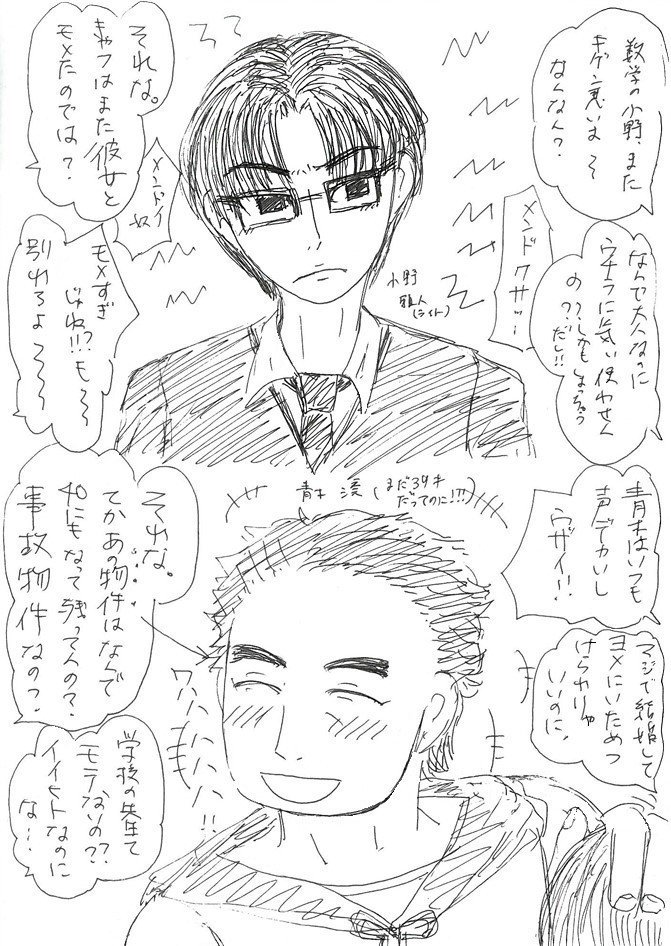 数学の小野、また
キゲン悪いよ〜
なんなん?
それな。
キャツはまた彼女と
モメたのでは?
メンドイ
奴
メンドクサッ…
なんで大人なのに
ウチラに気い使わせん
の??しかもしょっちゅう
だし!!
モメすぎ
じゃね!!?も〜
別れろよ〜〜〜
小野
雅人
(ライト)
青木 滉(まだ39才
だってのに!!!)
青木はいつも
声デカいし
ウザイ!!
それな。
てかあの物件はなんで
40にもなって残ってんの?
事故物件なの?
マジで結婚して
ヨメにいためつ
けられりゃ
いいのに。
ワハハハハハ!!
学校の先生て
モテないの??
イイヒトなのに
な…